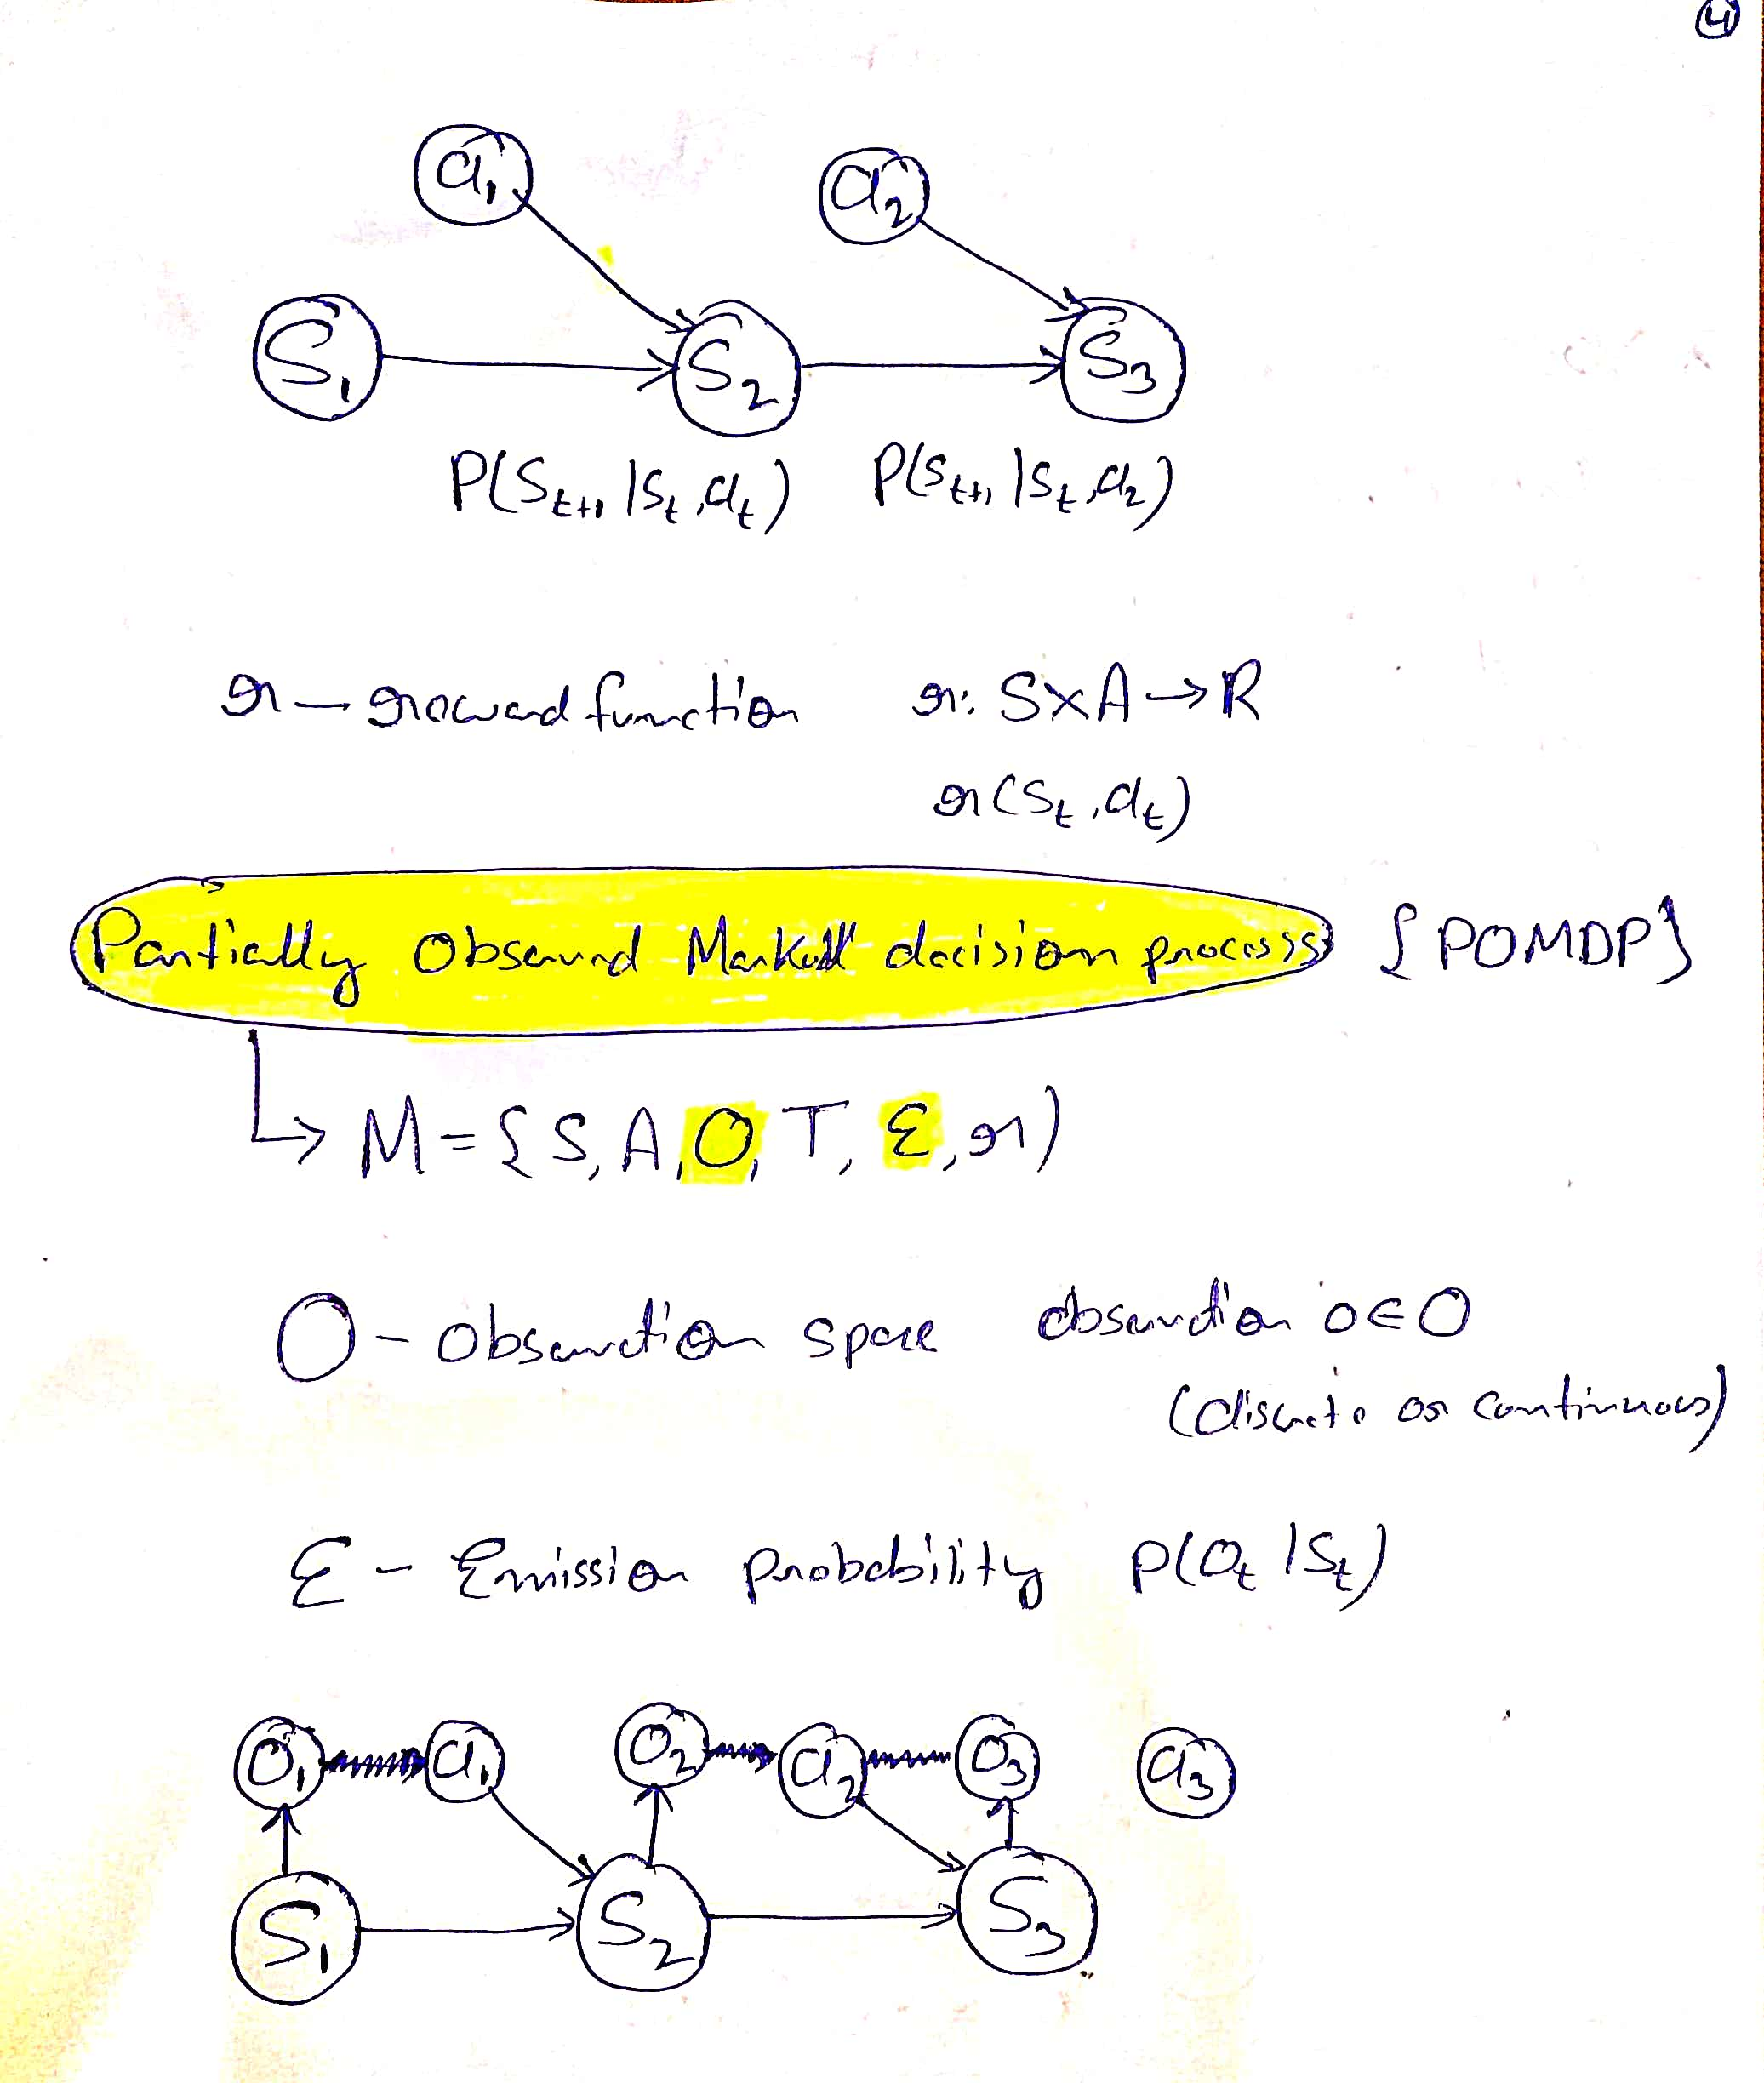 4
a₁ a₂
S₁ S₂ S₃
P(S_{t+1} | S_t, a_t) P(S_{t+1} | S_t, a_2)
r – reward function r: S×A → R
r(S_t, a_t)
Partially Observed Markov decision process {POMDP}
↳ M = {S, A, O, T, ε, r)
O – Observation space observation o ∈ O
(discrete or continuous)
ε – Emission Probability P(O_t | S_t)
O₁ a₁ O₂ a₂ O₃ a₃
S₁ S₂ S₃